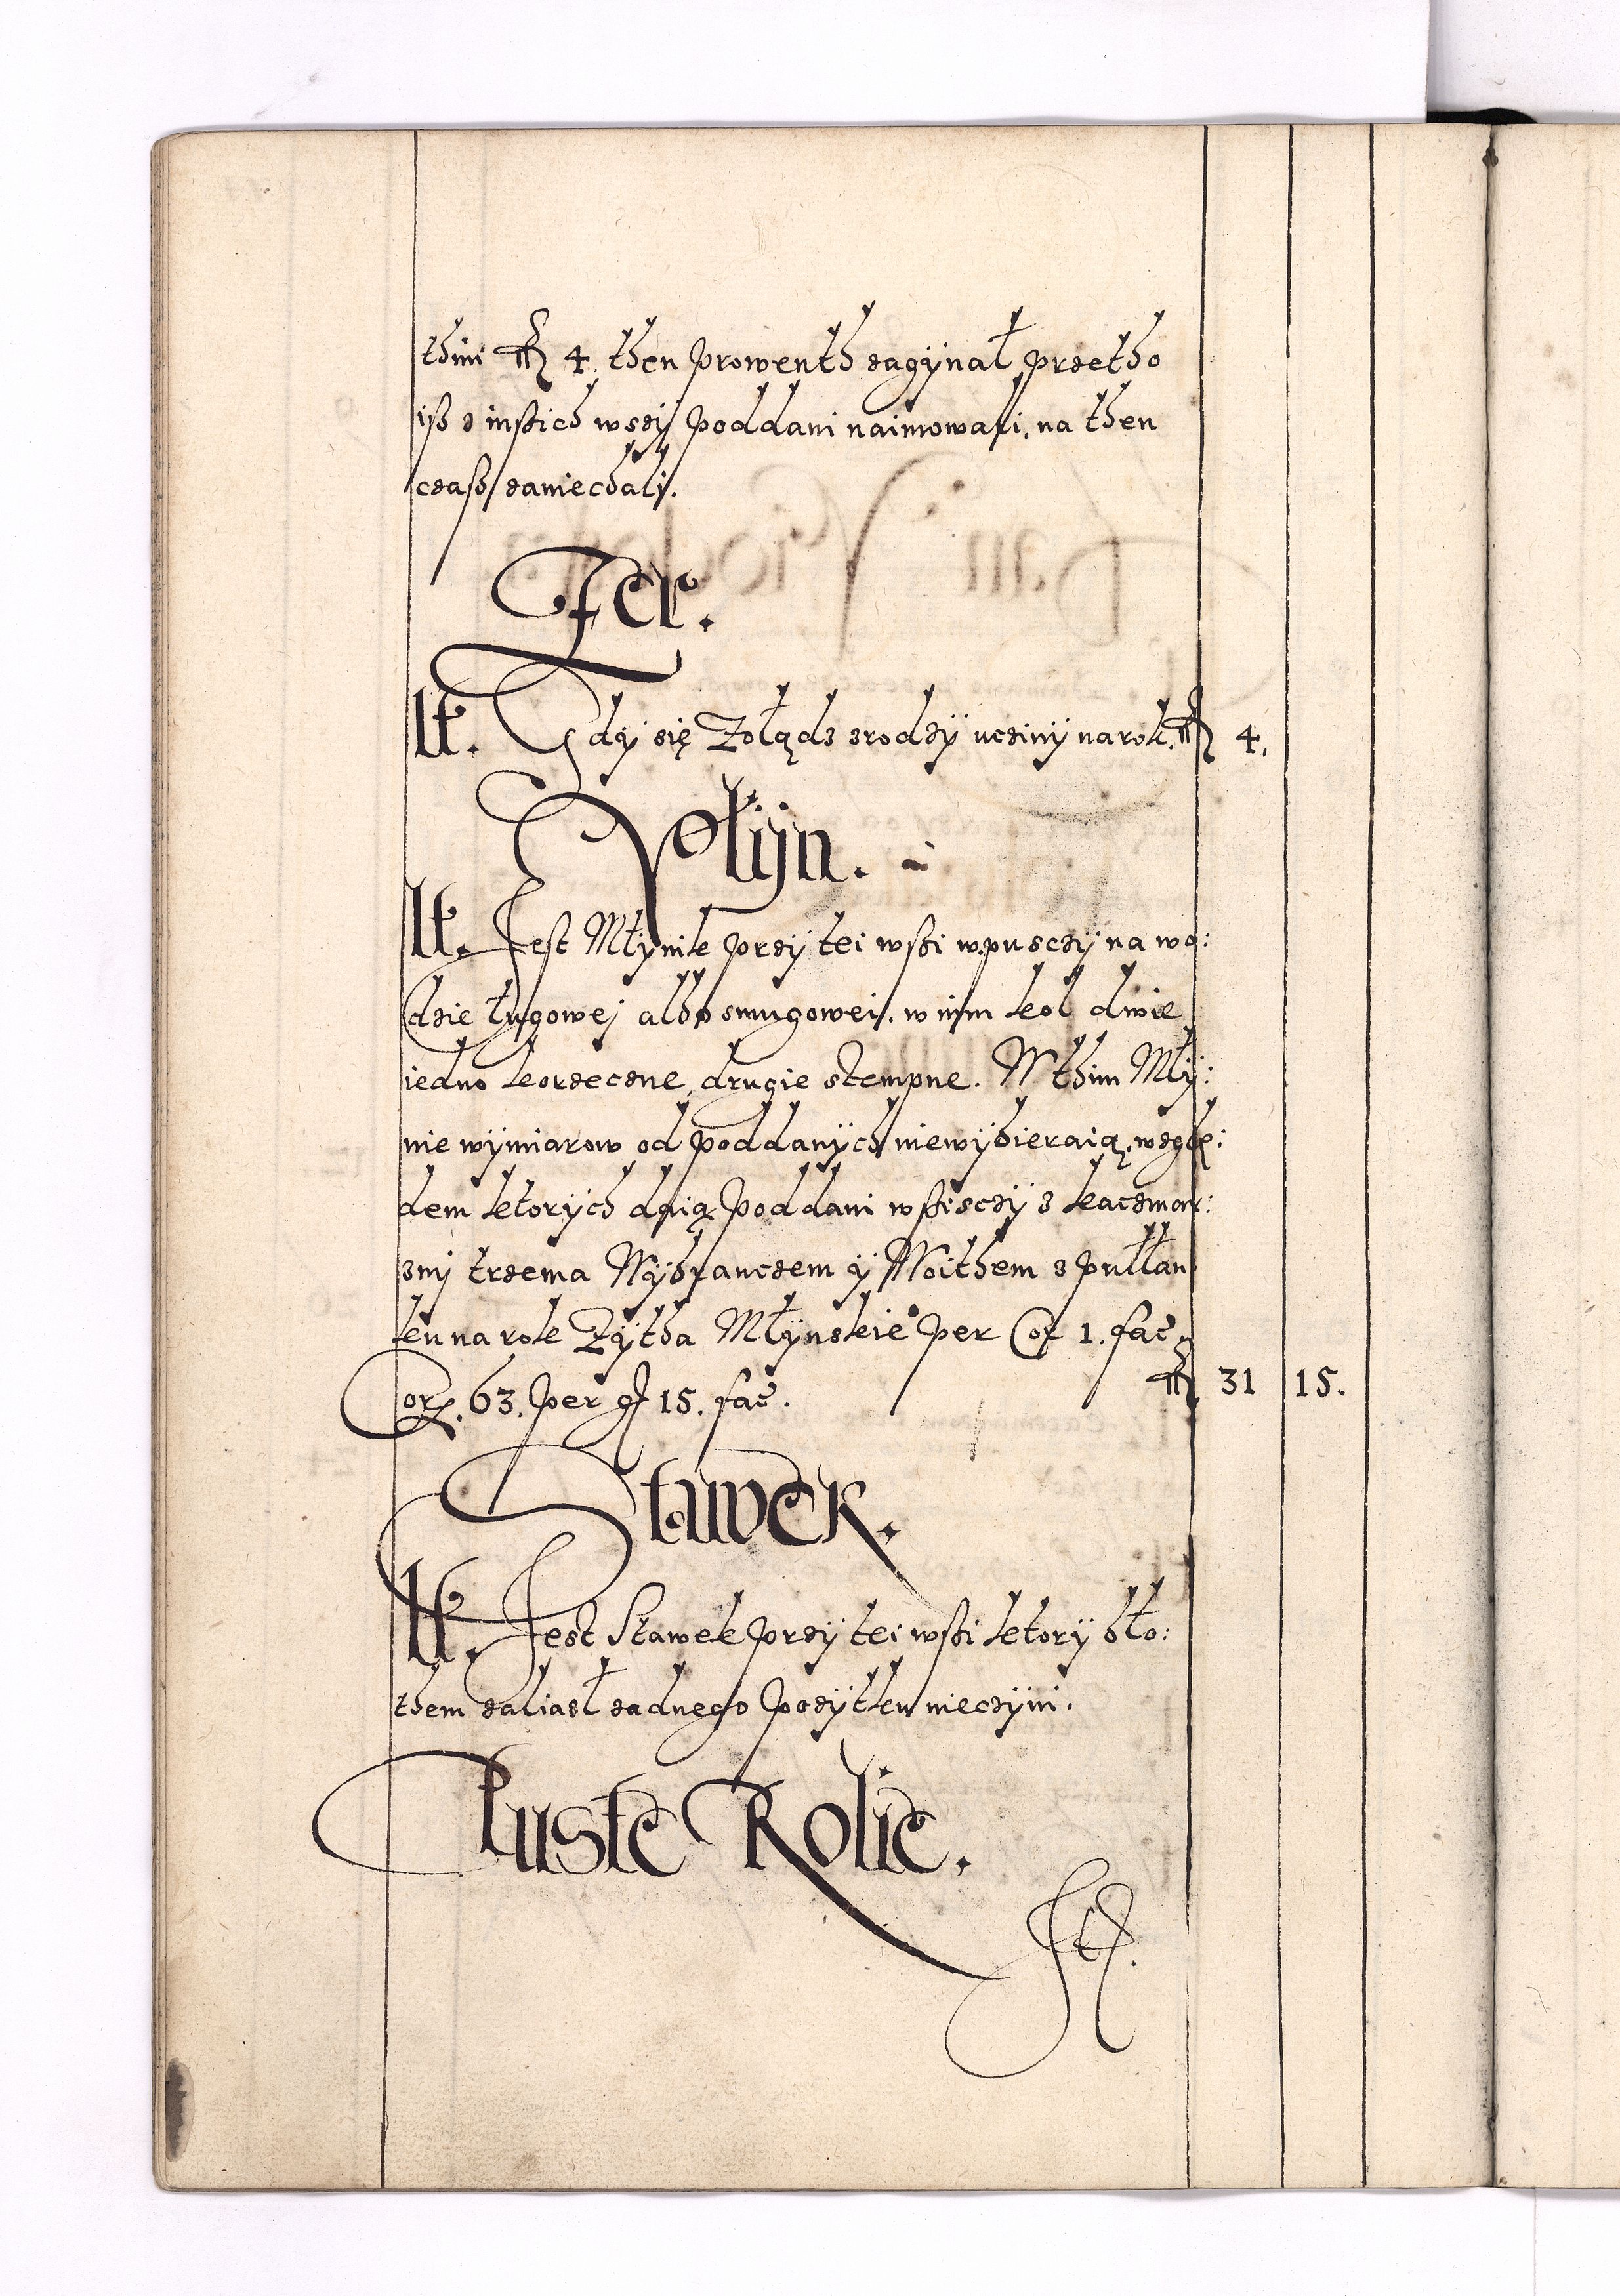 thim fl 4. then prowenth zagÿnał przetho
iß z inßich wszÿ poddani naimowali. na then
czaß zaniechali.
Zer.
It. Gdÿ się Zołądz zrodzÿ ucziny na rok. fl 4.
Młÿn.
It. Jest Młynik przÿ tei wßi w pusczÿ na wo:
dzie ługowej albo smugowei. w nim kol dwie
iedno korzeczne, drugie stempne. W thim Mły:
nie wÿmiarow od poddanÿch niewÿbieraią. wzglę:
dem ktorÿch daią poddani wßisczÿ z kaczmar:
zmi trzema Wÿbranczem ÿ Woithem z pułłan
ku na rok Zÿtha Młÿnskieº per Cor 1. fac.
Cor. 63. per gr 15. fac. fl 31 15.
Stawek.
It. Jest Stawek przÿ tei wßi ktorÿ bło:
them zaliasł zadnego pozÿtku nieczÿni.
Puste Rolie.